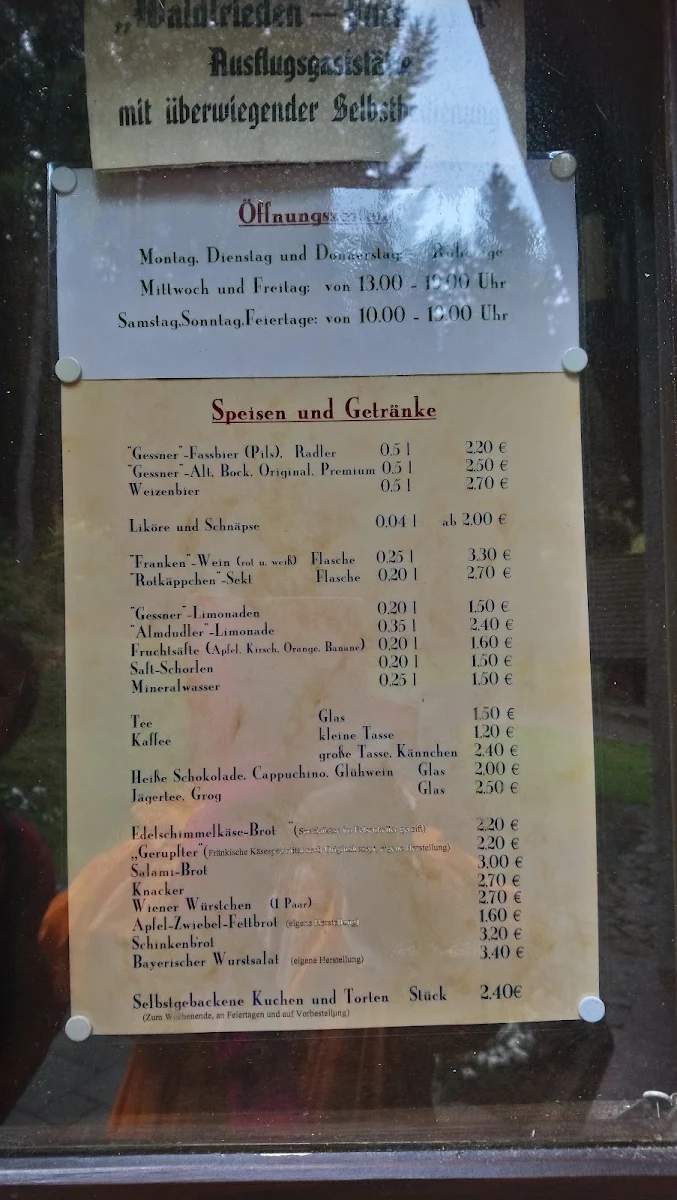 „Waldfrieden –
Ausflugsgaststätte
mit überwiegender Selbstbedienung
Öffnungszeiten
Montag, Dienstag und Donnerstag: Ruhetage
Mittwoch und Freitag: von 13.00 - 19.00 Uhr
Samstag,Sonntag,Feiertage: von 10.00 - 19.00 Uhr
Speisen und Getränke
"Gessner"-Fassbier (Pils), Radler 0,5 l 2,20 €
"Gessner"-Alt, Bock, Original, Premium 0,5 l 2,50 €
Weizenbier 0,5 l 2,70 €
Liköre und Schnäpse 0,04 l ab 2,00 €
"Franken"-Wein (rot u. weiß) Flasche 0,25 l 3,30 €
"Rotkäppchen"-Sekt Flasche 0,20 l 2,70 €
"Gessner"-Limonaden 0,20 l 1,50 €
"Almdudler"-Limonade 0,35 l 2,40 €
Fruchtsäfte (Apfel, Kirsch, Orange, Banane) 0,20 l 1,60 €
Saft-Schorlen 0,20 l 1,50 €
Mineralwasser 0,25 l 1,50 €
Tee Glas 1,50 €
Kaffee kleine Tasse 1,20 €
große Tasse, Kännchen 2,40 €
Heiße Schokolade, Cappuchino, Glühwein Glas 2,00 €
Jägertee, Grog Glas 2,50 €
Edelschimmelkäse-Brot 2,20 €
„Gerupfter" (Fränkische eigene Herstellung) 2,20 €
Salami-Brot 3,00 €
Knacker 2,70 €
Wiener Würstchen (1 Paar) 2,70 €
Apfel-Zwiebel-Fettbrot (eigene Herstellung) 1,60 €
Schinkenbrot 3,20 €
Bayerischer Wurstsalat (eigene Herstellung) 3,40 €
Selbstgebackene Kuchen und Torten Stück 2,40€
(Zum Wochenende, an Feiertagen und auf Vorbestellung)